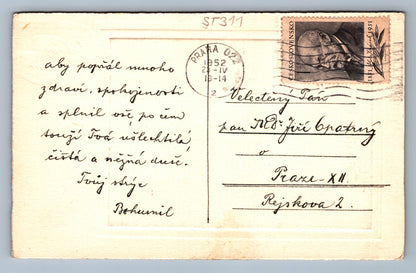 ST311
PRAHA 022
1952
22-IV
13-14
2
ČESKOSLOVENSKO
aby popřál mnoho
zdraví, spokojenosti
a splnil vše, po čem
touží Tvá ušlechtilá,
čistá a něžná duše.
Tvůj strýc
Bohumil
Velectěný Pán
pan MUDr. Jiří Opatrný
v
Praze - XII.
Rejskova 2.